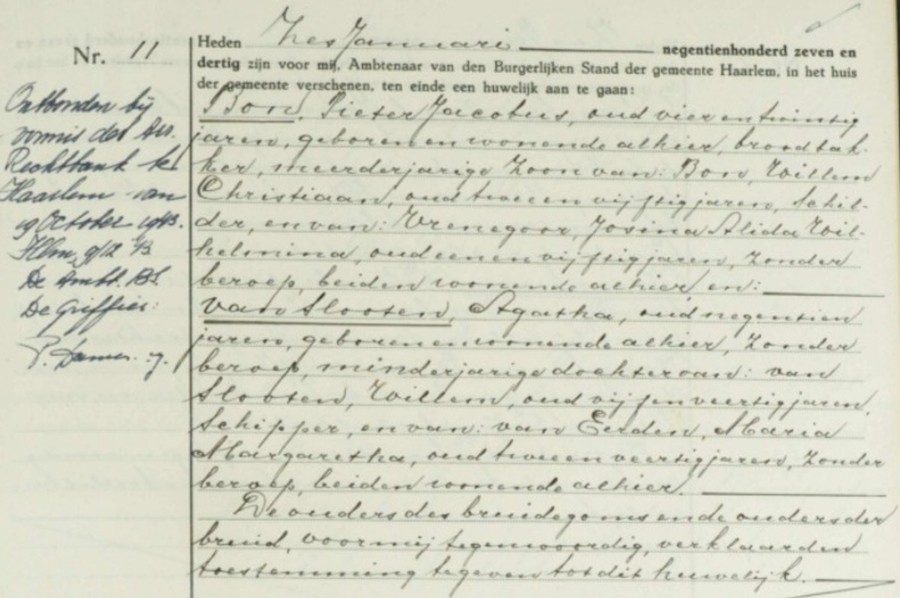 Nr. 11
Ontbonden bij
vonnis der Arr.
Rechtbank te
Haarlem van
19 October 1943.
De Ambt. B.S.
De Griffier:
Heden Zes Januari negentienhonderd zeven en
dertig zijn voor mij, Ambtenaar van den Burgerlijken Stand der gemeente Haarlem, in het huis
der gemeente verschenen, ten einde een huwelijk aan te gaan:
Bon, Pieter Jacobus, oud vier en twintig
jaren, geboren en wonende alhier, broodbak-
ker, meerderjarige zoon van: Bon, Willem
Christiaan, oud twee en vijftig jaren, schil-
der, en van: Vrenegoor, Josina Alida Wil-
helmina, oud een en vijftig jaren, zonder
beroep, beiden wonende alhier, en:
van Slooten, Agatha, oud negentien
jaren, geboren en wonende alhier, zonder
beroep, minderjarige dochter van: van
Slooten, Willem, oud vijf en veertig jaren,
schipper, en van: van Eerden, Maria
Margaretha, oud twee en veertig jaren, zonder
beroep, beiden wonende alhier.
De ouders des bruidegoms en de ouders der
bruid, voor mij tegenwoordig, verklaarden
toestemming te geven tot dit huwelijk.